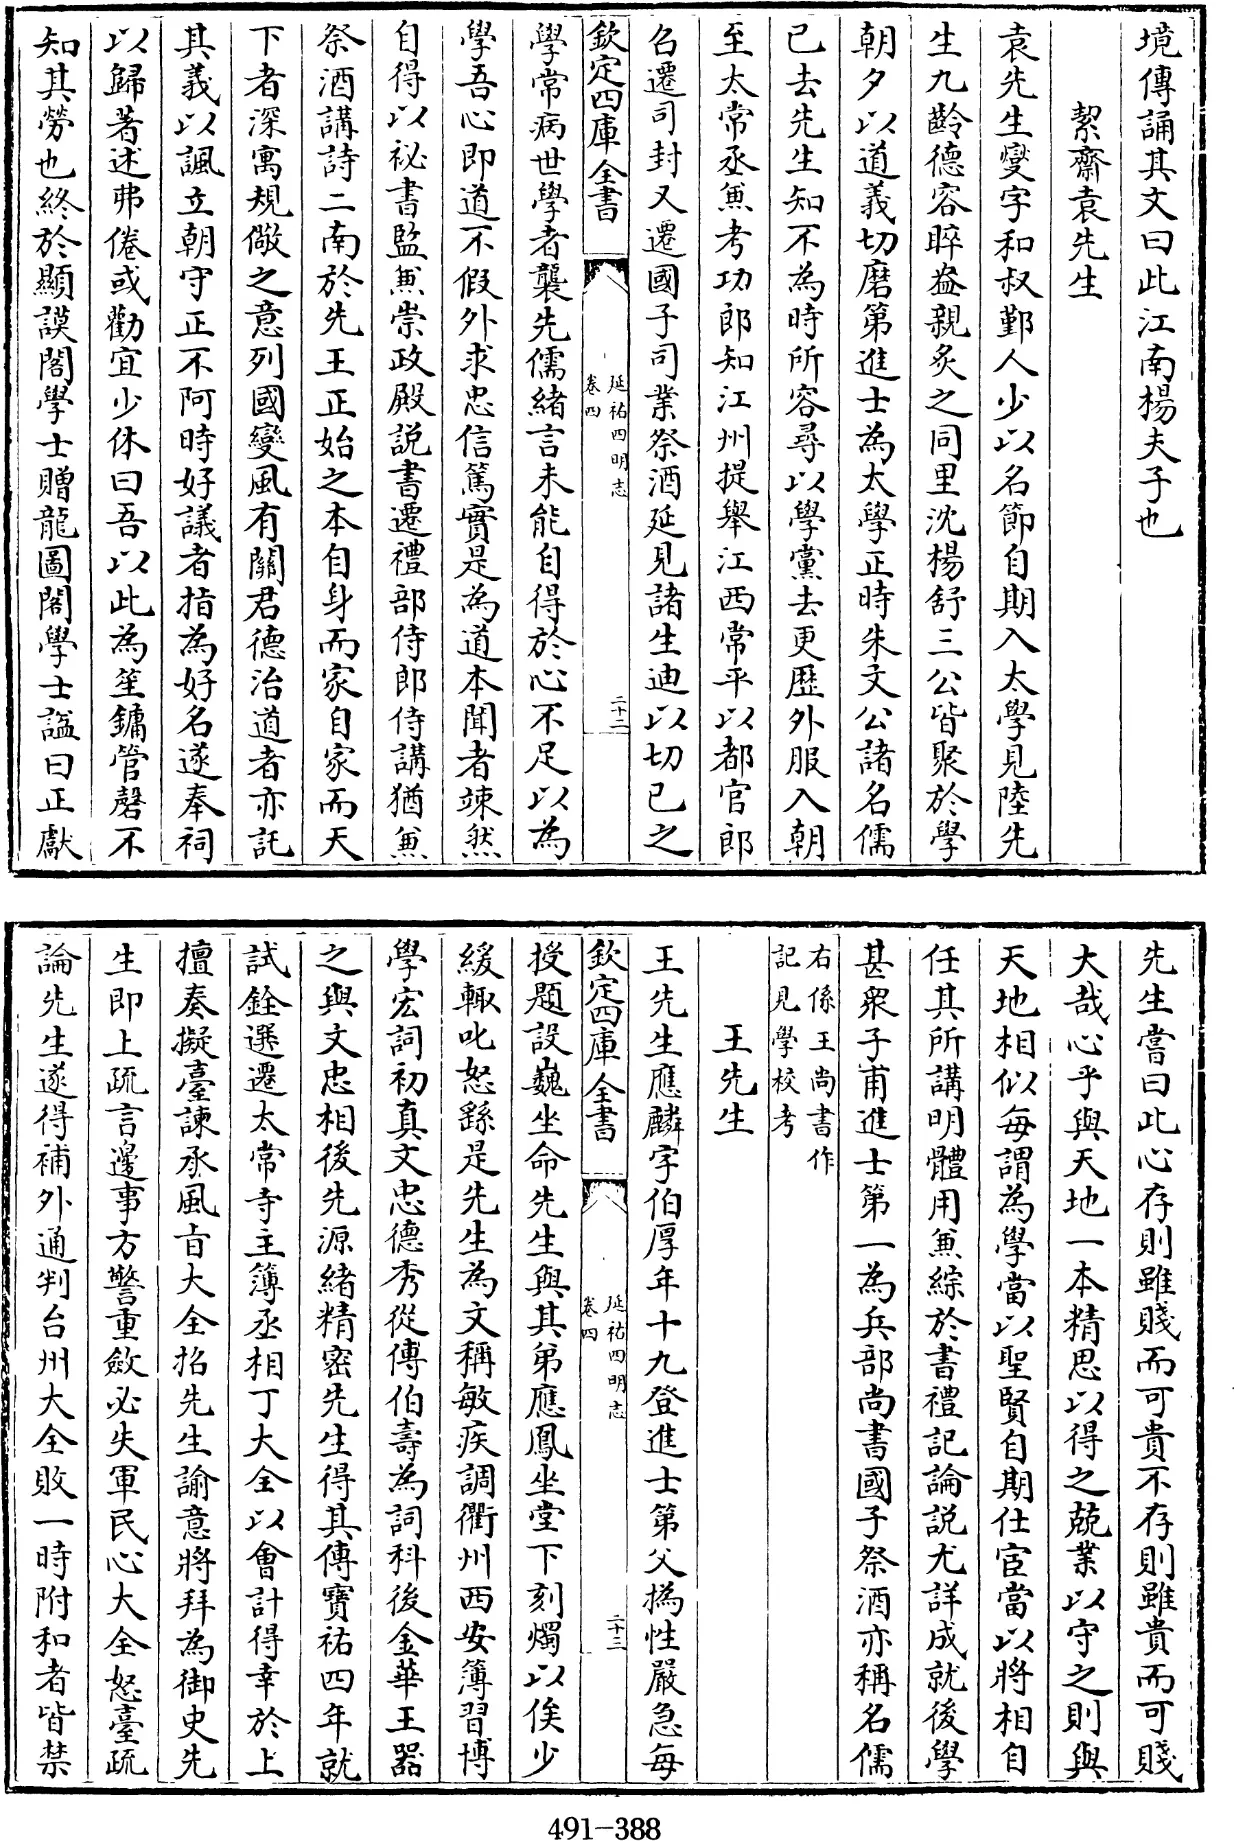 境傳誦其文曰此江南楊夫子也
絜齋袁先生
袁先生燮字和叔鄞人少以名節自期入太學見陸先
生九齡德容睟盎親炙之同里沈楊舒三公皆聚於學
朝夕以道義切磨第進士為太學正時朱文公諸名儒
已去先生知不為時所容尋以學黨去更歷外服入朝
至太常丞兼考功郎知江州提舉江西常平以都官郎
召遷司封又遷國子司業祭酒延見諸生迪以切已之
欽定四庫全書
延祐四明志
卷四
二十二
學常病世學者襲先儒緒言未能自得於心不足以為
學吾心即道不假外求忠信篤實是為道本聞者竦然
自得以祕書監兼崇政殿説書遷禮部侍郎侍講猶兼
祭酒講詩二南於先王正始之本自身而家自家而天
下者深寓規儆之意列國變風有關君德治道者亦託
其義以諷立朝守正不阿時好議者指為好名遂奉祠
以歸著述弗倦或勸宜少休曰吾以此為笙鏞管磬不
知其勞也終於顯謨閣學士贈龍圖閣學士諡曰正獻
先生嘗曰此心存則雖賤而可貴不存則雖貴而可賤
大哉心乎與天地一本精思以得之兢業以守之則與
天地相似每謂為學當以聖賢自期仕宦當以將相自
任其所講明體用兼綜於書禮記論説尤詳成就後學
甚衆子甫進士第一為兵部尚書國子祭酒亦稱名儒
右係王尚書作
記見學校考
王先生
王先生應麟字伯厚年十九登進士第父撝性嚴急每
欽定四庫全書
延祐四明志
卷四
二十三
授題設巍坐命先生與其弟應鳳坐堂下刻燭以俟少
緩輒叱怒繇是先生為文稱敏疾調衢州西安簿習博
學宏詞初真文忠德秀從傳伯壽為詞科後金華王器
之與文忠相後先源緒精密先生得其傳寶祐四年就
試銓選遷太常寺主簿丞相丁大全以會計得幸於上
擅奏擬臺諫承風旨大全招先生諭意將拜為御史先
生即上疏言邊事方警重斂必失軍民心大全怒臺疏
論先生遂得補外通判台州大全敗一時附和者皆禁
491-388